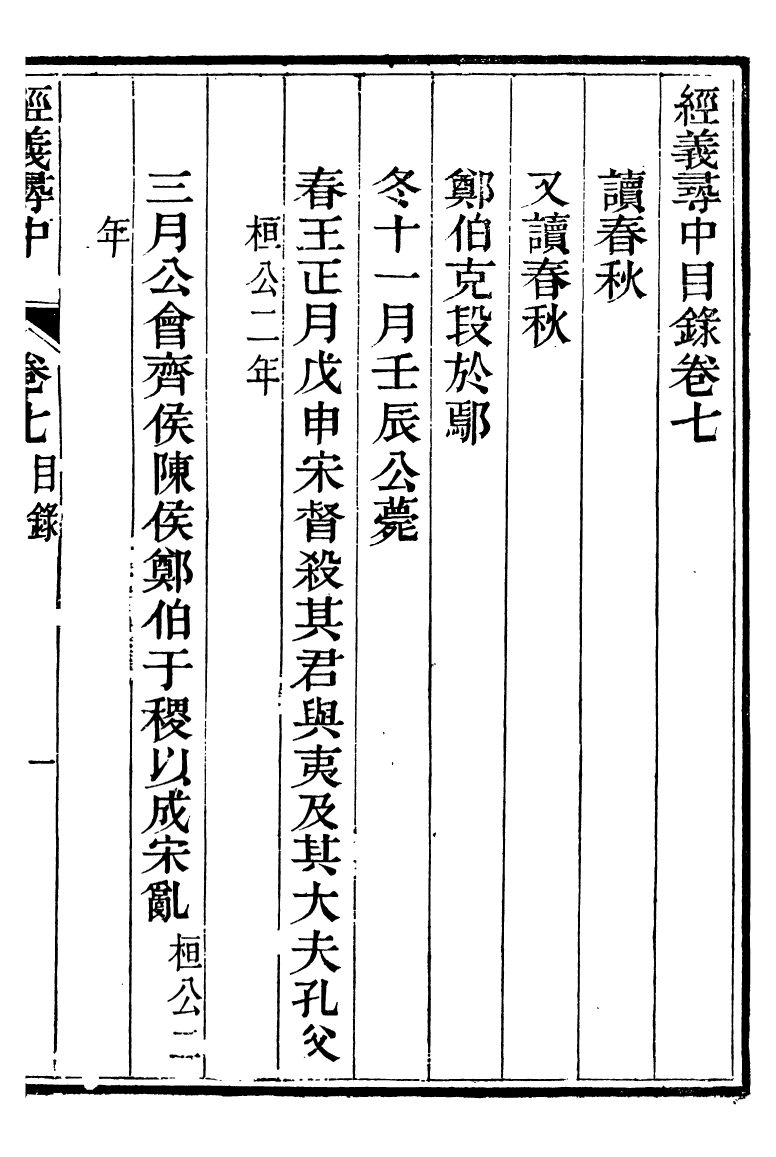 經義尋中目錄卷七
讀春秋
又讀春秋
鄭伯克段於鄢
冬十一月壬辰公薨
春王正月戊申宋督殺其君與夷及其大夫孔父
桓公二年
三月公會齊侯陳侯鄭伯于稷以成宋亂桓公二
年
經義尋中 卷七目錄 一